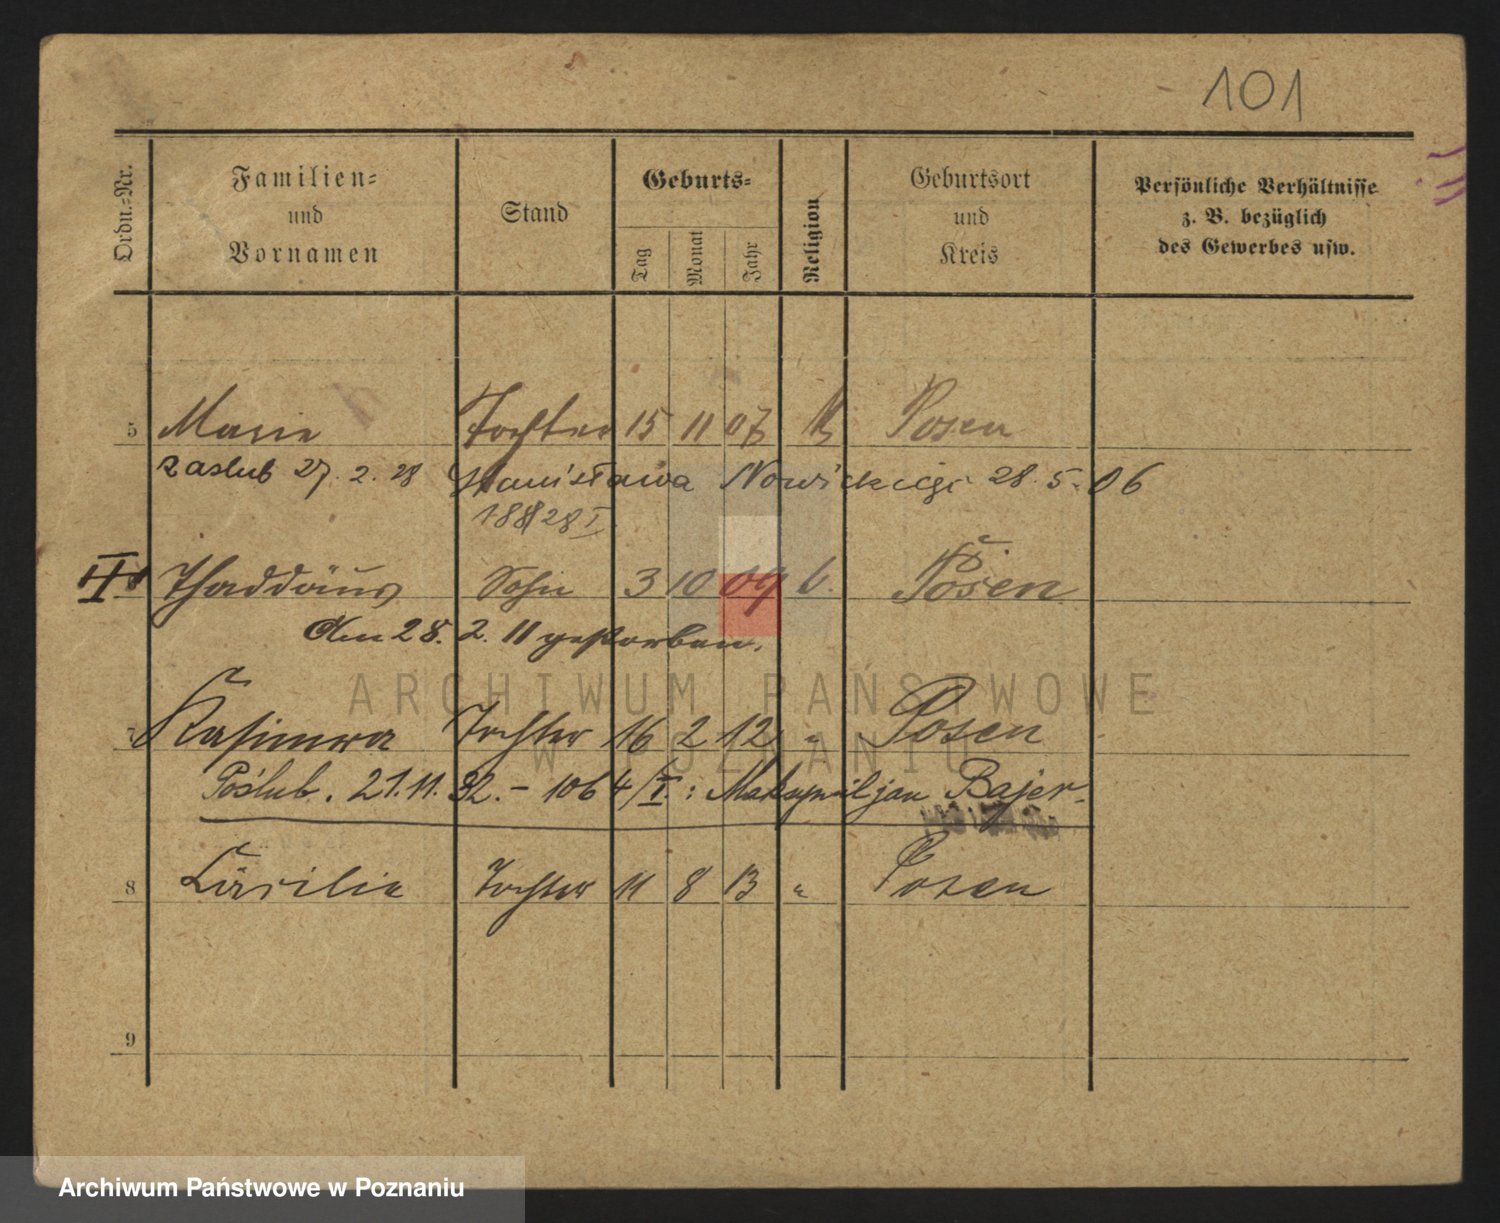 101
Ordn.-Nr. Familien- und Vornamen Stand Geburts- Tag Monat Jahr Religion Geburtsort und Kreis Persönliche Verhältnisse z. B. bezüglich des Gewerbes usw.
5 Marie Tochter 15 11 07 k Posen
zaslub 27. 2. 28 Stanisława Nowickiego 28. 5. 06
Thaddäus Sohn 3 10 09 k. Posen
Am 28. 2. 11 gestorben.
ARCHIWUM PAŃSTWOWE
W POZNANIU
7 Kasimira Tochter 16 2 12 " Posen
Poślub. 21.11.32.- 1064/I.: Maksymiljan Bajer.
8 Cäcilie Tochter 11 8 13 " Posen
9
Archiwum Państwowe w Poznaniu